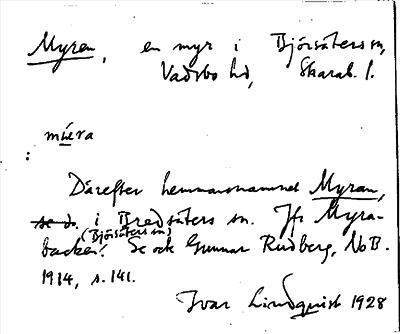 Myren, en myr i Björsäters sn,
Vadsbo hd, Skarab. l.
mi̇́era
:
Därefter hemmansnamnet Myran,
se d. i Bredsäters sn. Jfr Myra-
(Björsäters sn)
backen! Se ock Gunnar Rudberg, NoB.
1914, s. 141.
Ivar Lindquist 1928